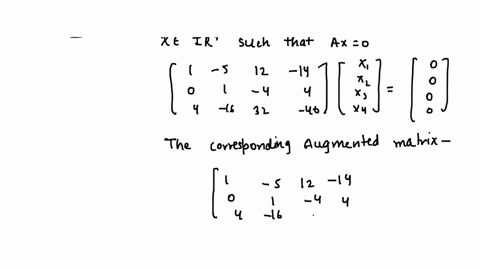 x ∈ IR' such that Ax=0
[ 1 -5 12 -14 ] [ x1 ] = [ 0 ]
[ 0 1 -4 4 ] [ x2 ] [ 0 ]
[ 4 -16 32 -40 ] [ x3 ] [ 0 ]
[ x4 ] [ 0 ]
The corresponding Augmented matrix-
[ 1 -5 12 -14
0 1 -4 4
4 -16